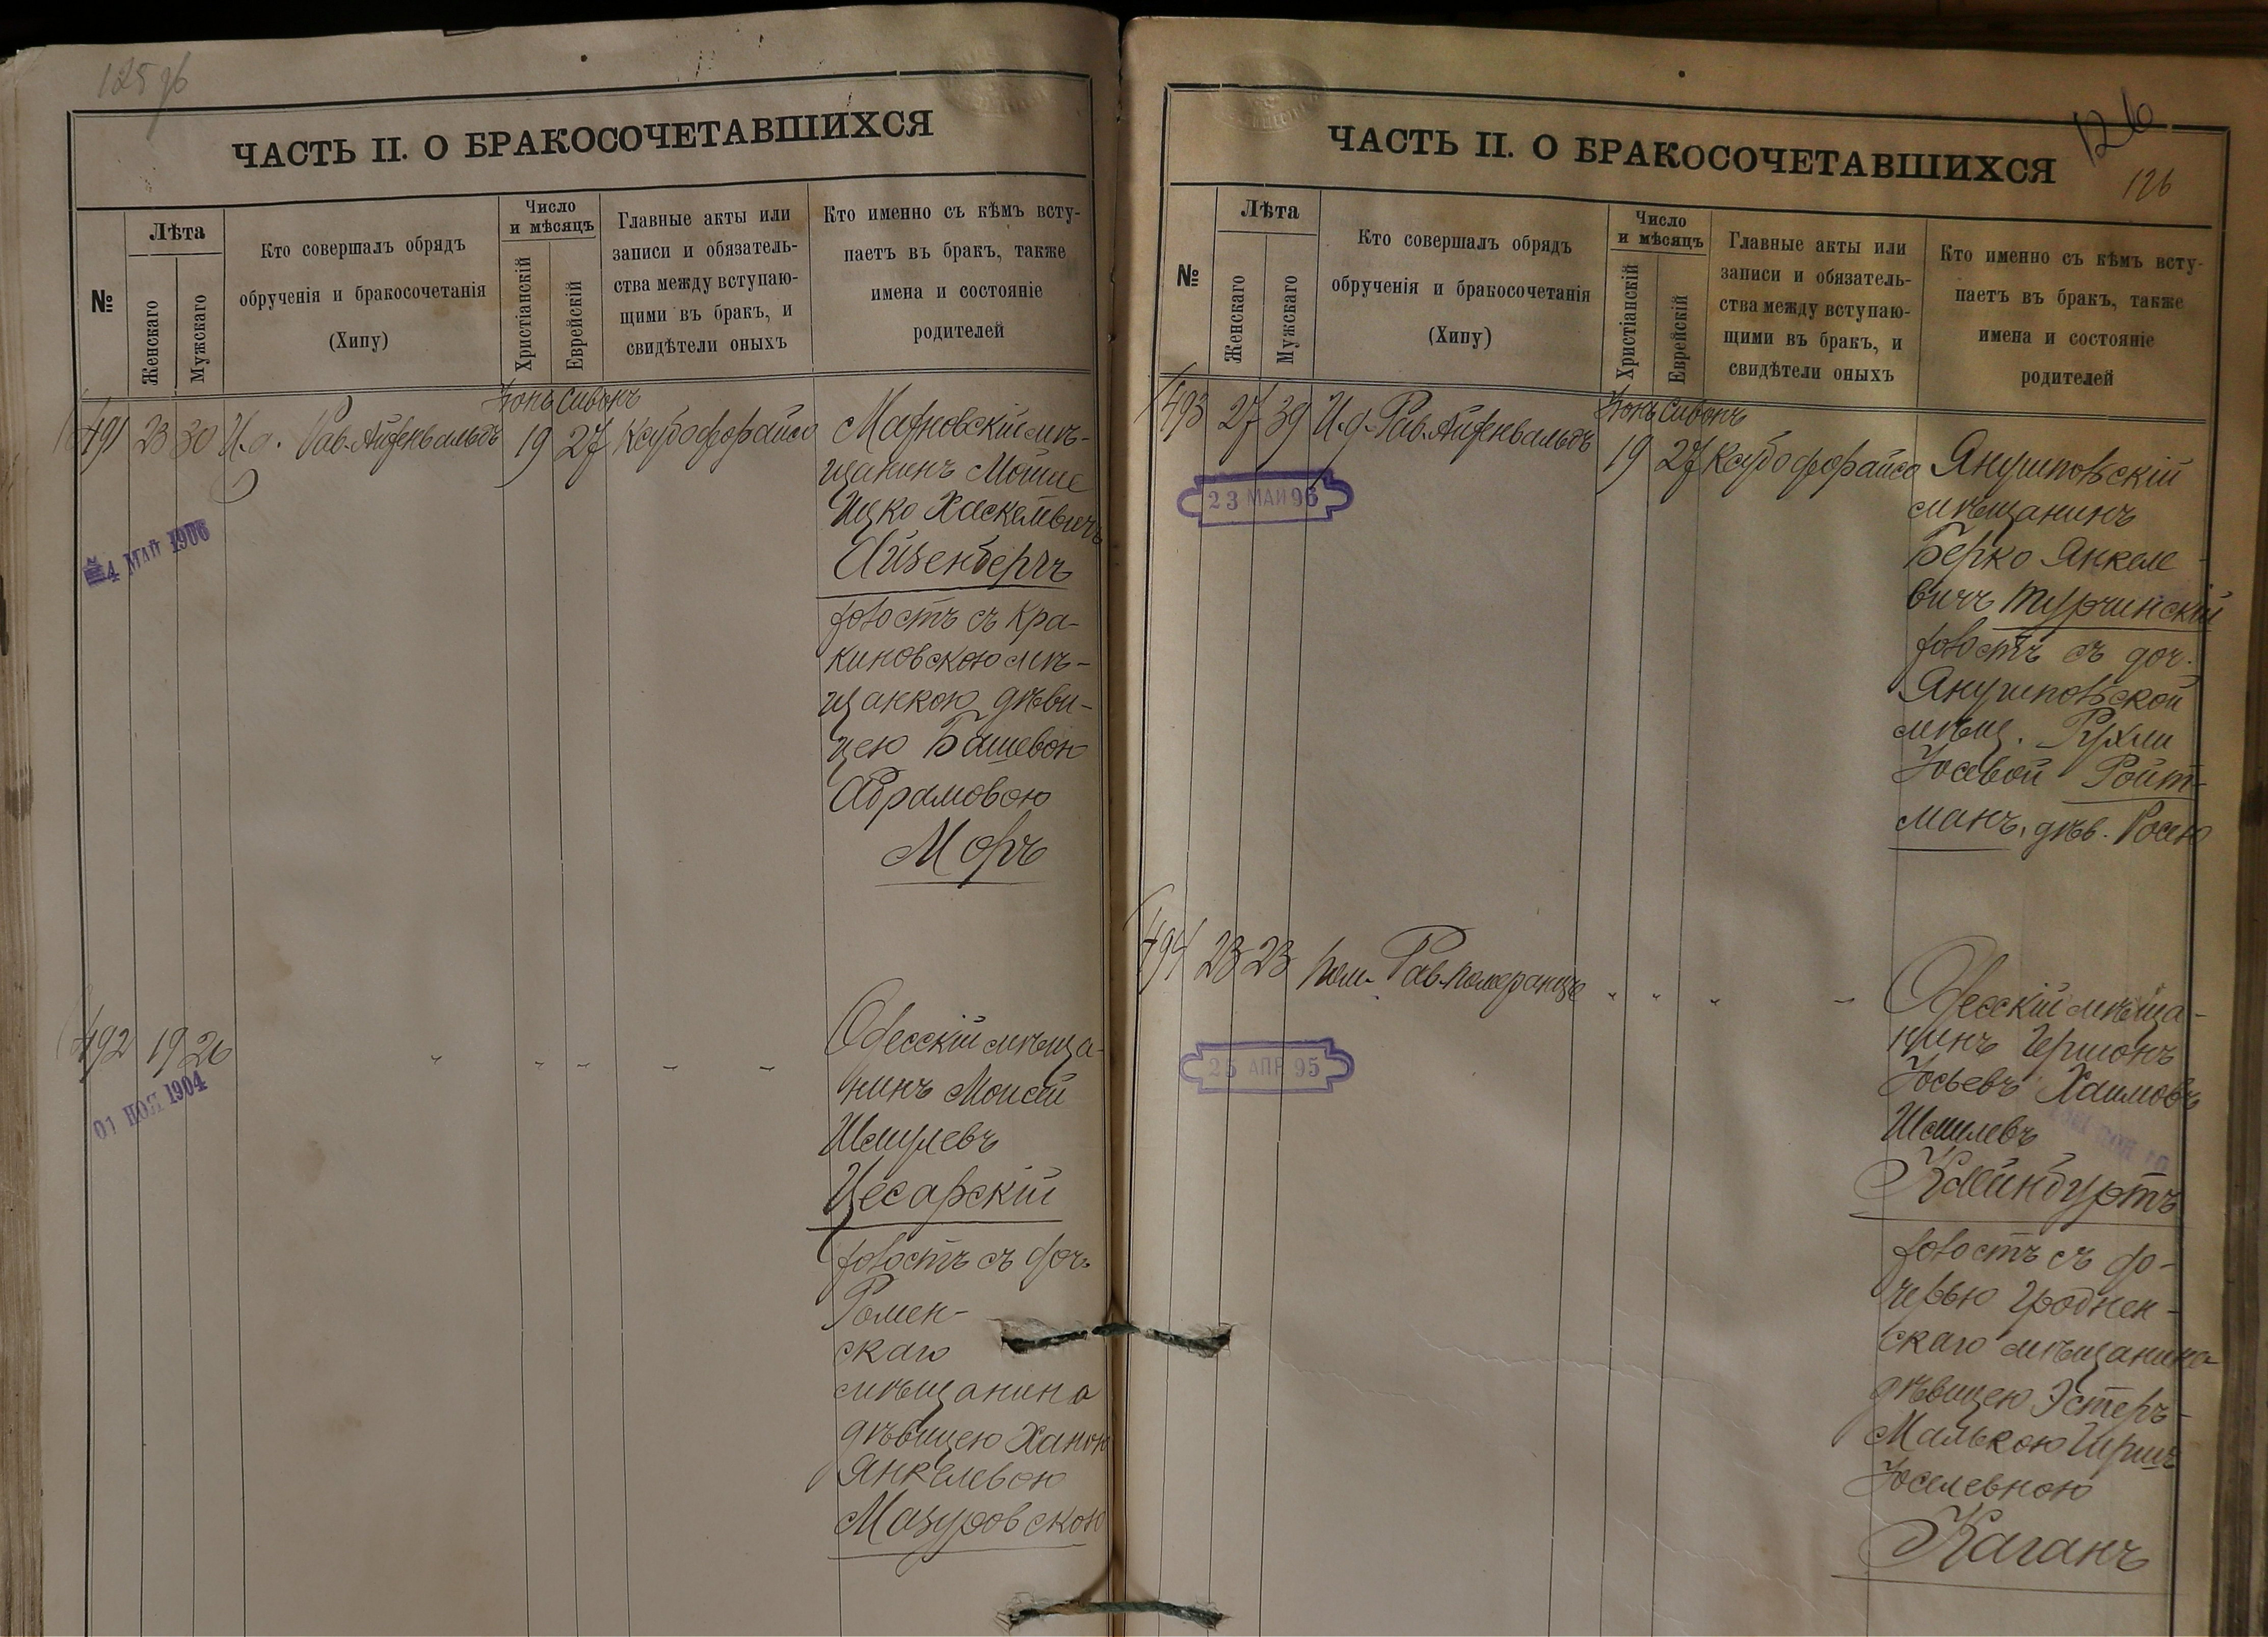 125 об
ЧАСТЬ II. О БРАКОСОЧЕТАВШИХСЯ
№
Лѣта
Женскаго
Мужскаго
Кто совершалъ обрядъ
обрученія и бракосочетанія
(Хипу)
Число
и мѣсяцъ
Христіанскій
Еврейскій
Главные акты или
записи и обязатель-
ства между вступаю-
щими въ бракъ, и
свидѣтели оныхъ
Кто именно съ кѣмъ всту-
паетъ въ бракъ, также
имена и состояніе
родителей
Іюнь Сивонъ
491 23 30 И. д. Рав. Айзенвальдъ 19 27 Ксубо
мѣ-
щанинъ Мойше
Ицко Хаскелевичъ
Айзенбергъ
холостъ съ Кра-
киновскою мѣ-
щанкою дѣви-
цею Башевою
Абрамовою
Моръ
4 МАЙ 1906
492 19 26 " " " " "
Одесскій мѣща-
нинъ Моисей
Шмулевъ
Цесарскій
холостъ съ доч.
Ромен-
скаго
мѣщанина
дѣвицею Ханою
Янкелевою
Мазуровскою
01 НОЯ 1904
126
126
ЧАСТЬ II. О БРАКОСОЧЕТАВШИХСЯ
№
Лѣта
Женскаго
Мужскаго
Кто совершалъ обрядъ
обрученія и бракосочетанія
(Хипу)
Число
и мѣсяцъ
Христіанскій
Еврейскій
Главные акты или
записи и обязатель-
ства между вступаю-
щими въ бракъ, и
свидѣтели оныхъ
Кто именно съ кѣмъ всту-
паетъ въ бракъ, также
имена и состояніе
родителей
Іюнь Сивонъ
493 27 39 И. д. Рав. Айзенвальдъ 19 27 Ксубо
Янушповскій
мѣщанинъ
Берко Янкеле-
вичъ Турчинскій
холостъ съ доч.
Янушповской
мѣщ. Рухли
Іосевой Ройт-
манъ, дѣв. Росею
23 МАЙ 96
494 23 23 Пом. Рав. Померанцъ " " " "
Одесскій мѣща-
нинъ Гершонъ
Іосьевъ Хаимовъ
Шмилевъ
Клейнбуртъ
холостъ съ до-
черью Гроднен-
скаго мѣщанина
дѣвицею Эстеръ-
Малькою Гиршъ
Іоселевною
Каганъ
25 АПР 95